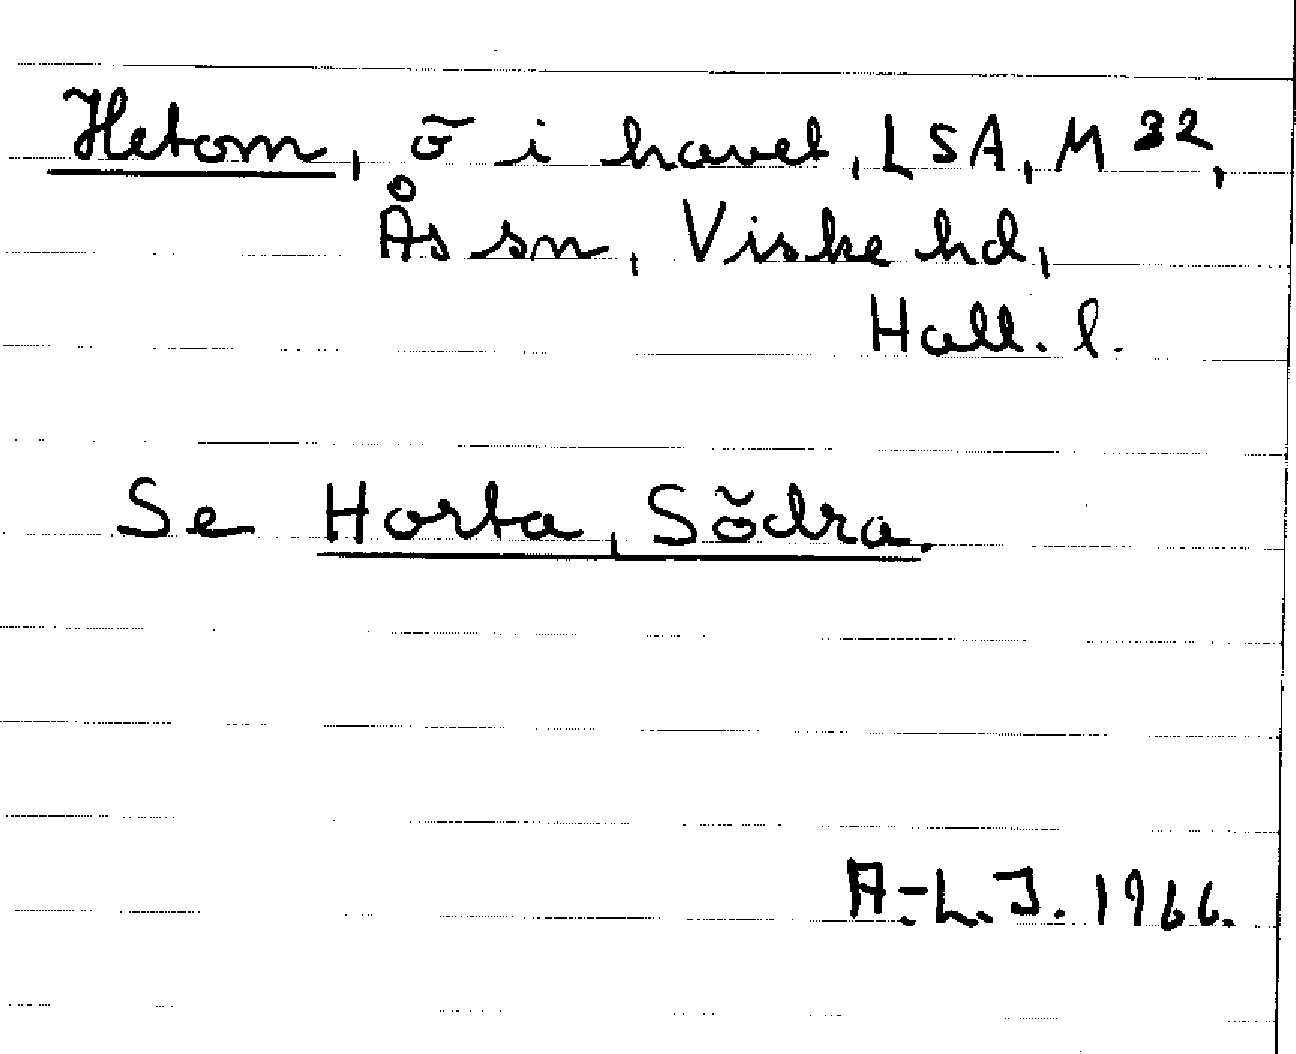 Hetom, ö i havet, LSA, M 32,
Ås sn, Viske hd,
Hall. l.
Se Horta, Södra.
A-L.J. 1966.